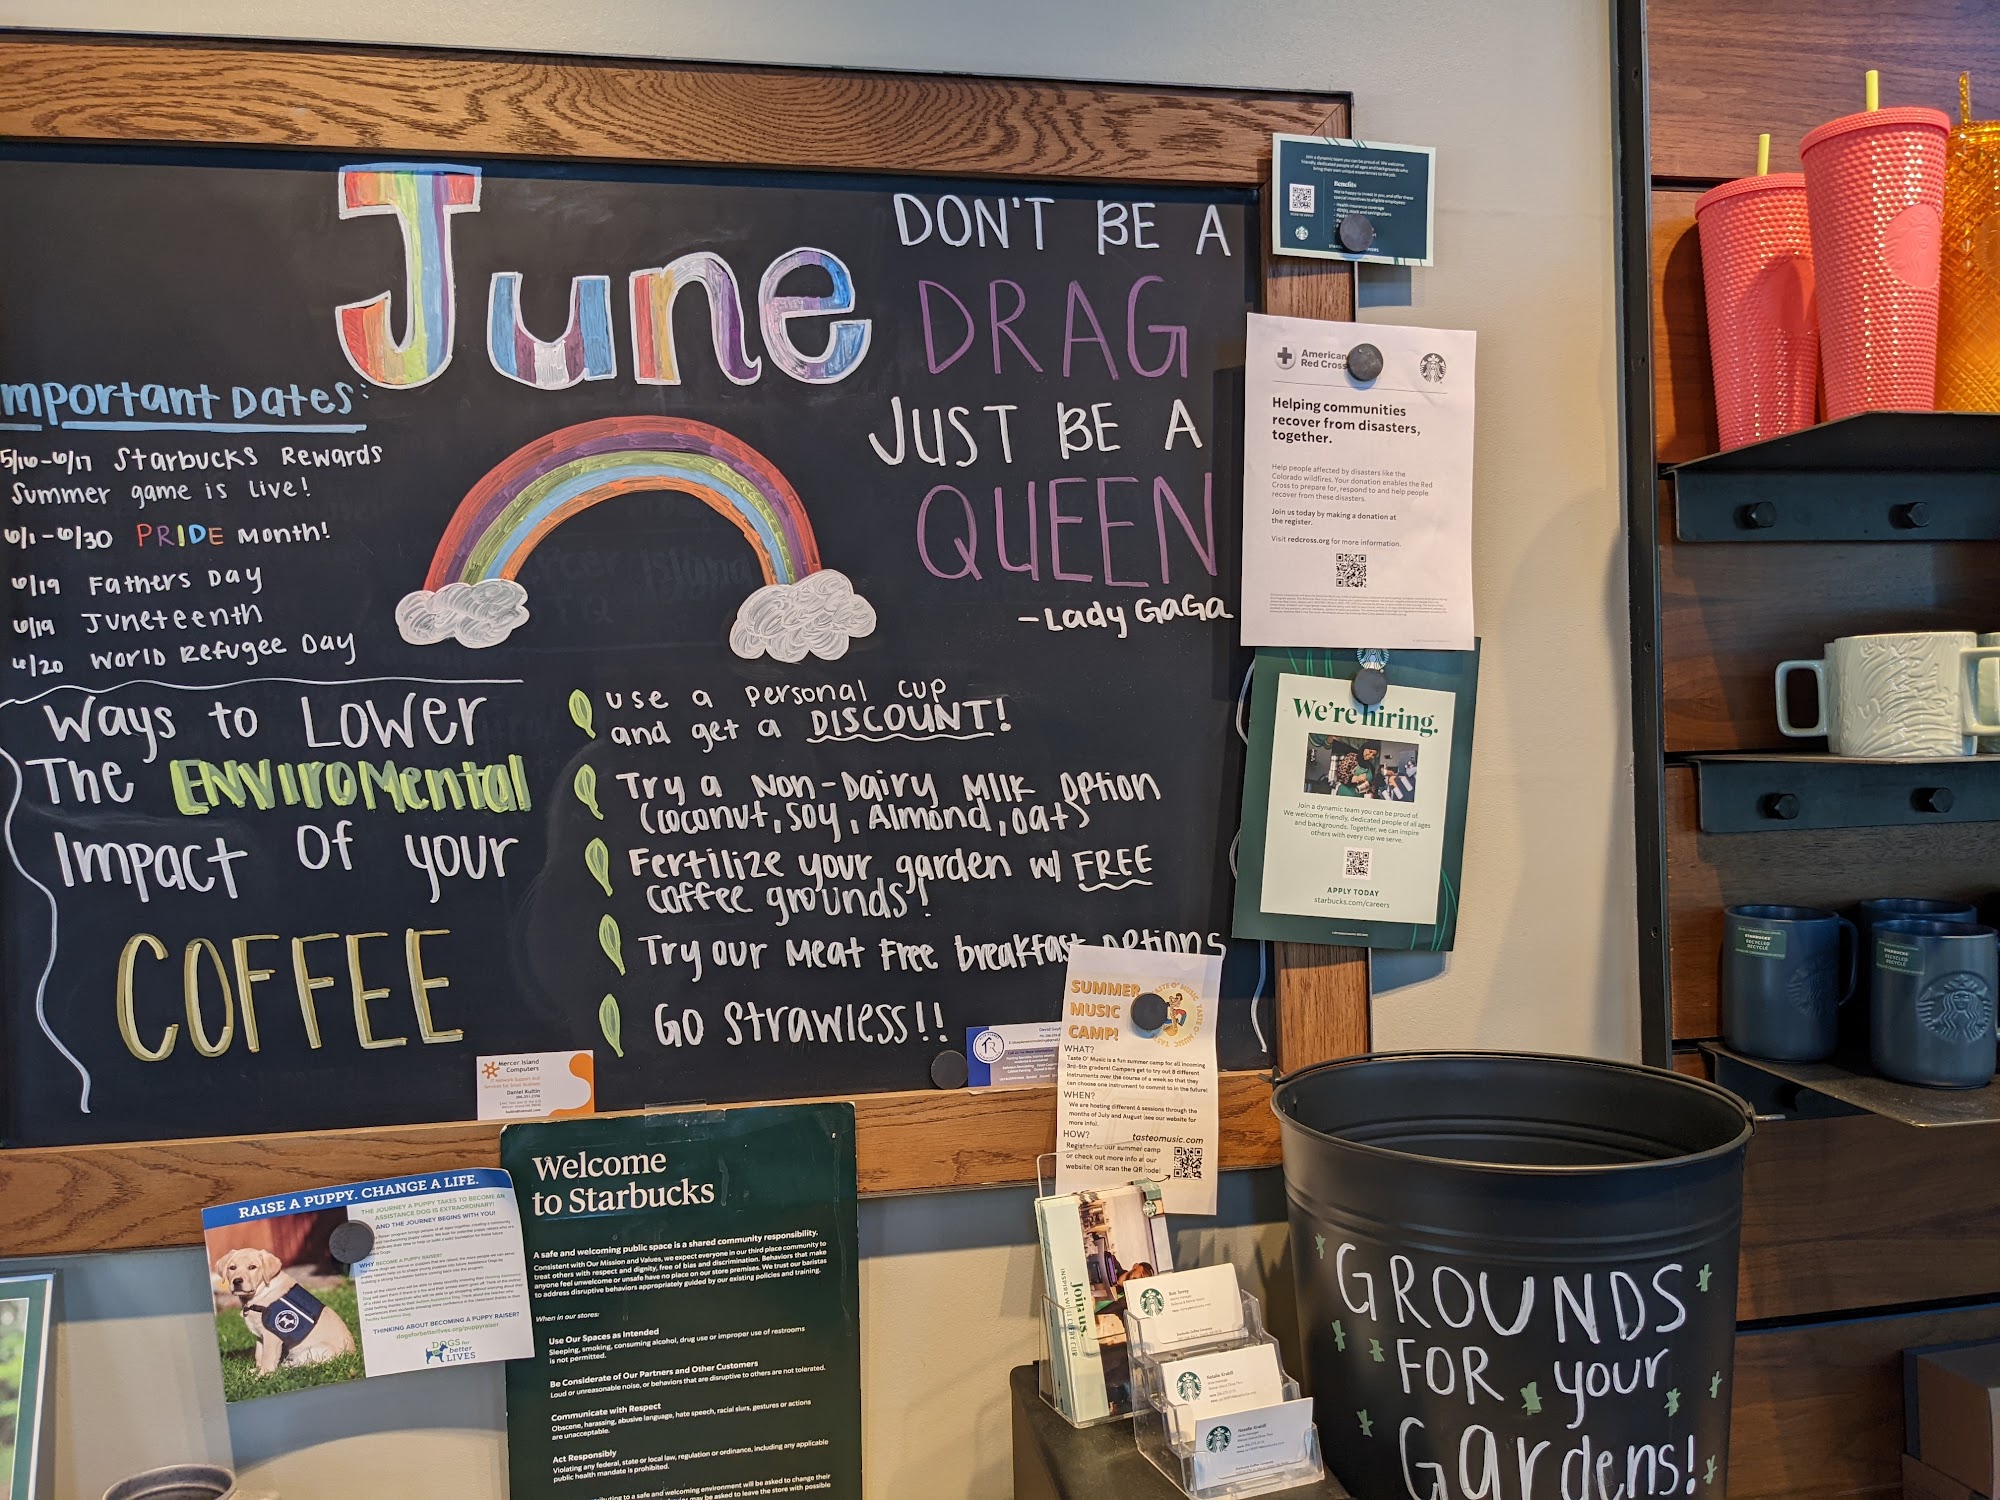 June
DON'T BE A
DRAG
JUST BE A
QUEEN
-Lady GaGa
mportant Dates:
5/16-6/17 Starbucks Rewards
Summer game is live!
6/1-6/30 PRIDE Month!
6/19 Fathers Day
6/19 Juneteenth
6/20 World Refugee Day
Ways to Lower
The Enviromental
Impact of your
COFFEE
use a personal cup
and get a DISCOUNT!
Try a Non-Dairy Milk option
(coconut, soy, Almond, oat)
Fertilize your garden w/ FREE
coffee grounds!
Try our Meat Free breakfast options
Go Strawless!!
Join a dynamic team you can be proud of. We welcome
friendly, dedicated people of all ages and backgrounds who
Benefits
American
Red Cross
Helping communities
recover from disasters,
together.
Help people affected by disasters like the
Colorado wildfires. Your donation enables the Red
Cross to prepare for, respond to and help people
recover from these disasters.
Join us today by making a donation at
the register.
Visit redcross.org for more information.
We're hiring.
Join a dynamic team you can be proud of.
We welcome friendly, dedicated people of all ages
and backgrounds. Together, we can inspire
others with every cup we serve.
APPLY TODAY
starbucks.com/careers
Mercer Island
Computers
IT Network Support And
Services for Small Business
Daniel Kultin
SUMMER
MUSIC
CAMP!
TASTE O' MUSIC
WHAT?
Taste O' Music is a fun summer camp for all incoming
3rd-5th graders! Campers get to try out 8 different
instruments over the course of a week so that they
can choose one instrument to commit to in the future!
WHEN?
We are hosting different 6 sessions through the
months of July and August (see our website for
more info).
HOW?
tasteomusic.com
Register for our summer camp
or check out more info at our
website! OR scan the QR code!
RAISE A PUPPY. CHANGE A LIFE.
THE JOURNEY A PUPPY TAKES TO BECOME AN
ASSISTANCE DOG IS EXTRAORDINARY!
AND THE JOURNEY BEGINS WITH YOU!
WHY BECOME A PUPPY RAISER?
THINKING ABOUT BECOMING A PUPPY RAISER?
dogsforbetterlives.org/puppyraiser
DOGS for
better
LIVES
Welcome
to Starbucks
A safe and welcoming public space is a shared community responsibility.
Consistent with Our Mission and Values, we expect everyone in our third place community to
treat others with respect and dignity, free of bias and discrimination. Behaviors that make
anyone feel unwelcome or unsafe have no place on our store premises. We trust our baristas
to address disruptive behaviors appropriately guided by our existing policies and training.
When in our stores:
Use Our Spaces as Intended
Sleeping, smoking, consuming alcohol, drug use or improper use of restrooms
is not permitted.
Be Considerate of Our Partners and Other Customers
Loud or unreasonable noise, or behaviors that are disruptive to others are not tolerated.
Communicate with Respect
Obscene, harassing, abusive language, hate speech, racial slurs, gestures or actions
are unacceptable.
Act Responsibly
Violating any federal, state or local law, regulation or ordinance, including any applicable
public health mandate is prohibited.
to a safe and welcoming environment will be asked to change their
may be asked to leave the store with possible
Join us.
GROUNDS
FOR your
Gardens!
STARBUCKS
RECYCLED
RECYCLÉ
STARBUCKS
RECYCLED
RECYCLÉ